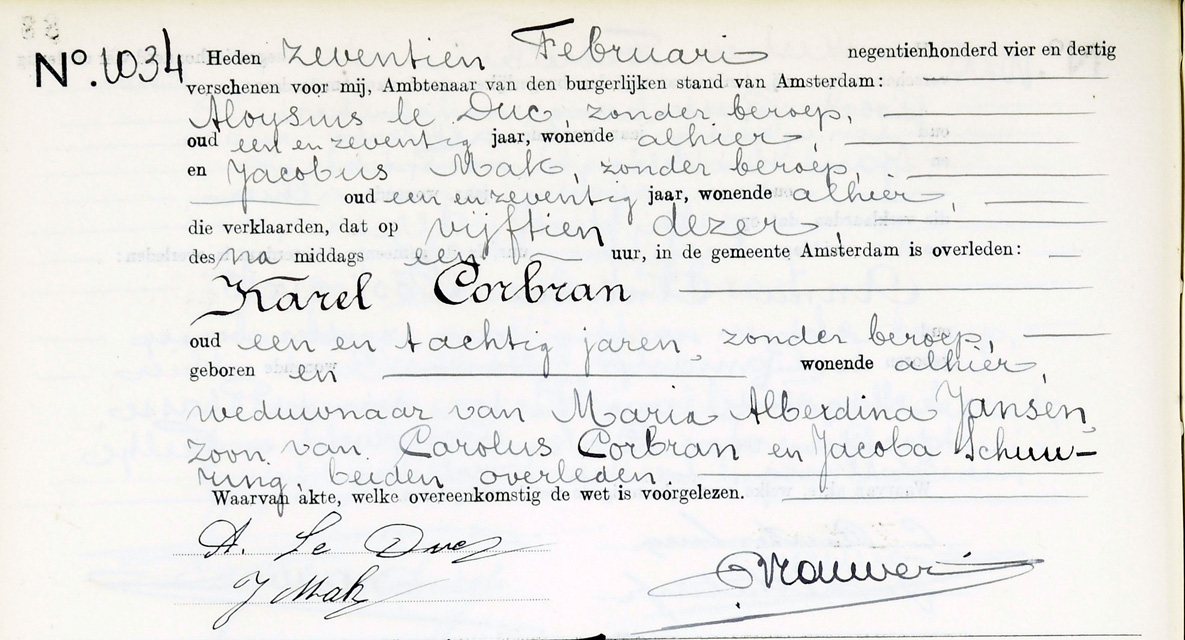 Nº. 1034 Heden zeventien Februari negentienhonderd vier en dertig
verschenen voor mij, Ambtenaar van den burgerlijken stand van Amsterdam:
Aloysius le Duc, zonder beroep,
oud een en zeventig jaar, wonende alhier,
en Jacobus Mak, zonder beroep,
oud een en zeventig jaar, wonende alhier,
die verklaarden, dat op vijftien dezer,
des na middags een uur, in de gemeente Amsterdam is overleden:
Karel Corbran
oud een en tachtig jaren, zonder beroep,
geboren en wonende alhier,
weduwnaar van Maria Alberdina Jansen,
zoon van Carolus Corbran en Jacoba Schuu-
ring, beiden overleden.
Waarvan akte, welke overeenkomstig de wet is voorgelezen.
A. Le Duc
J Mak